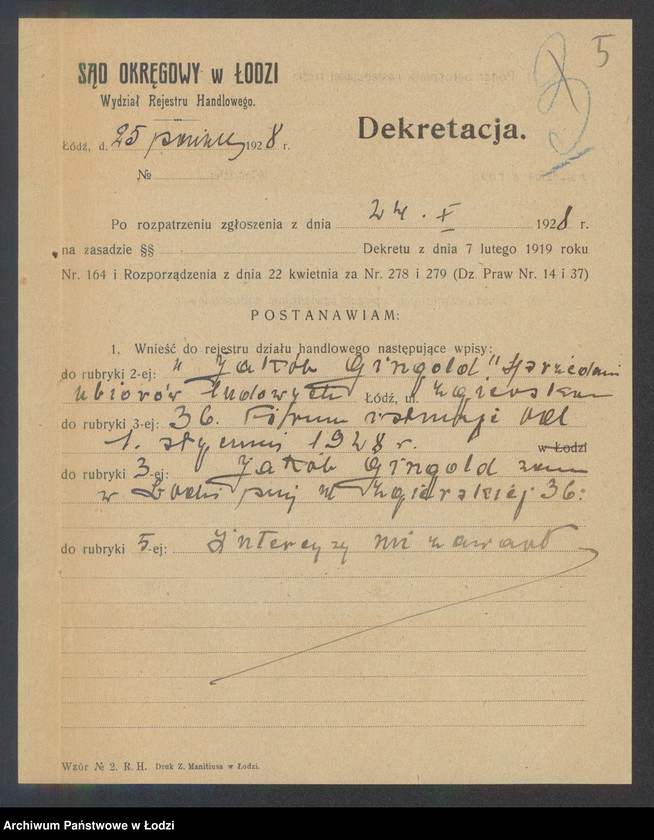 5
SĄD OKRĘGOWY w ŁODZI
Wydział Rejestru Handlowego.
Dekretacja.
Łódź, d. 25 1928 r.
№
Po rozpatrzeniu zgłoszenia z dnia 24. X 1928 r.
na zasadzie §§ Dekretu z dnia 7 lutego 1919 roku
Nr. 164 i Rozporządzenia z dnia 22 kwietnia za Nr. 278 i 279 (Dz. Praw Nr. 14 i 37)
POSTANAWIAM:
1. Wnieść do rejestru działu handlowego następujące wpisy:
do rubryki 2-ej: „Jakób Gingold"
ubiorów ludowych Łódź, ul. Zgierska
do rubryki 3-ej: 36. Firma istnieje od
1. stycznia 1928 r. w Łodzi
do rubryki 3-ej: Jakób Gingold zam
w Łodzi przy ul Zgierskiej 36.
do rubryki 5-ej: Intercyzy nie zawarł
Wzór № 2. R. H. Druk Z. Manitiusa w Łodzi.
Archiwum Państwowe w Łodzi